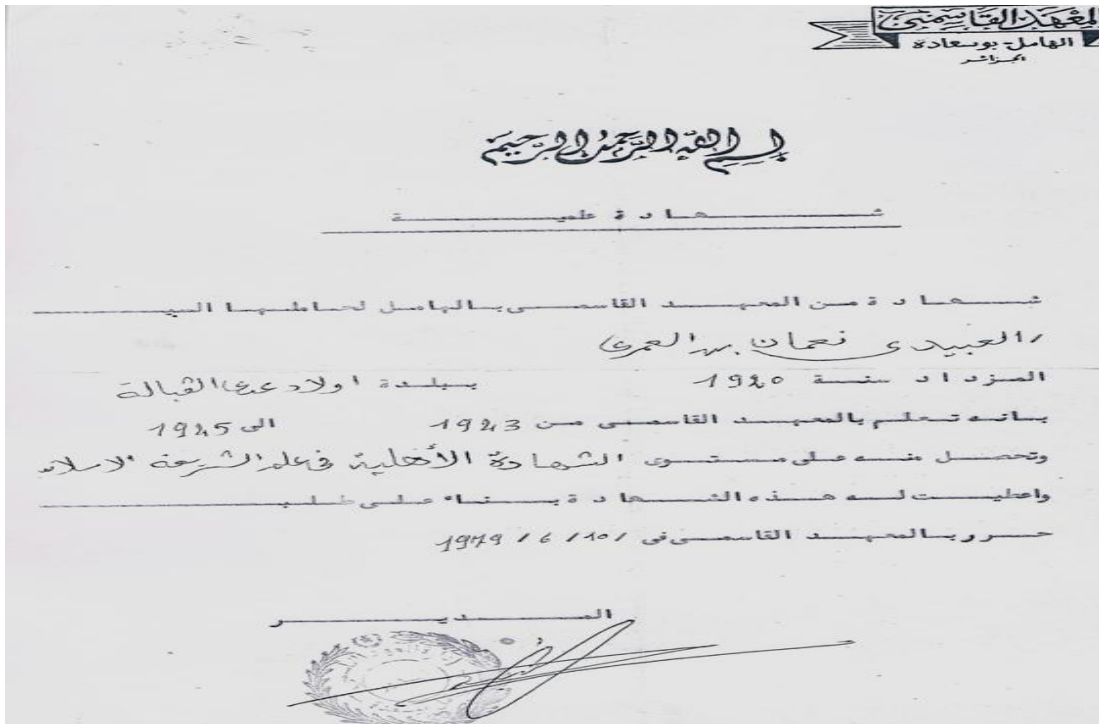 المعهد القاسمي
الهامل بوسعادة
الجزائر
بسم الله الرحمن الرحيم
شهادة علمية
شهادة من المعهد القاسمي بالهامل لحاملها السيد
العبيدي نعمان بن العمري
المزداد سنة 1920 ببلدة اولاد عدي القبالة
بانه تعلم بالمعهد القاسمي من 1943 الى 1945
وتحصل منه على مستوى الشهادة الأهلية في علم الشريعة الاسلامية
واعطيت له هذه الشهادة بناء على طلبه
حرر بالمعهد القاسمي في 10 / 6 / 1979
المدير